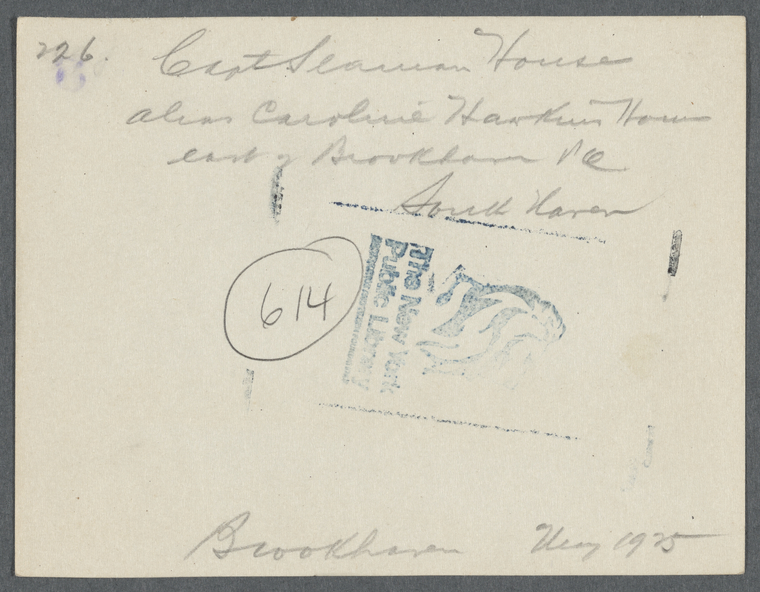 226.
Capt Seaman House
alias Caroline Hawkins House
east of Brookhaven
South Haven
614
The New York
Public Library
Brookhaven May 1925